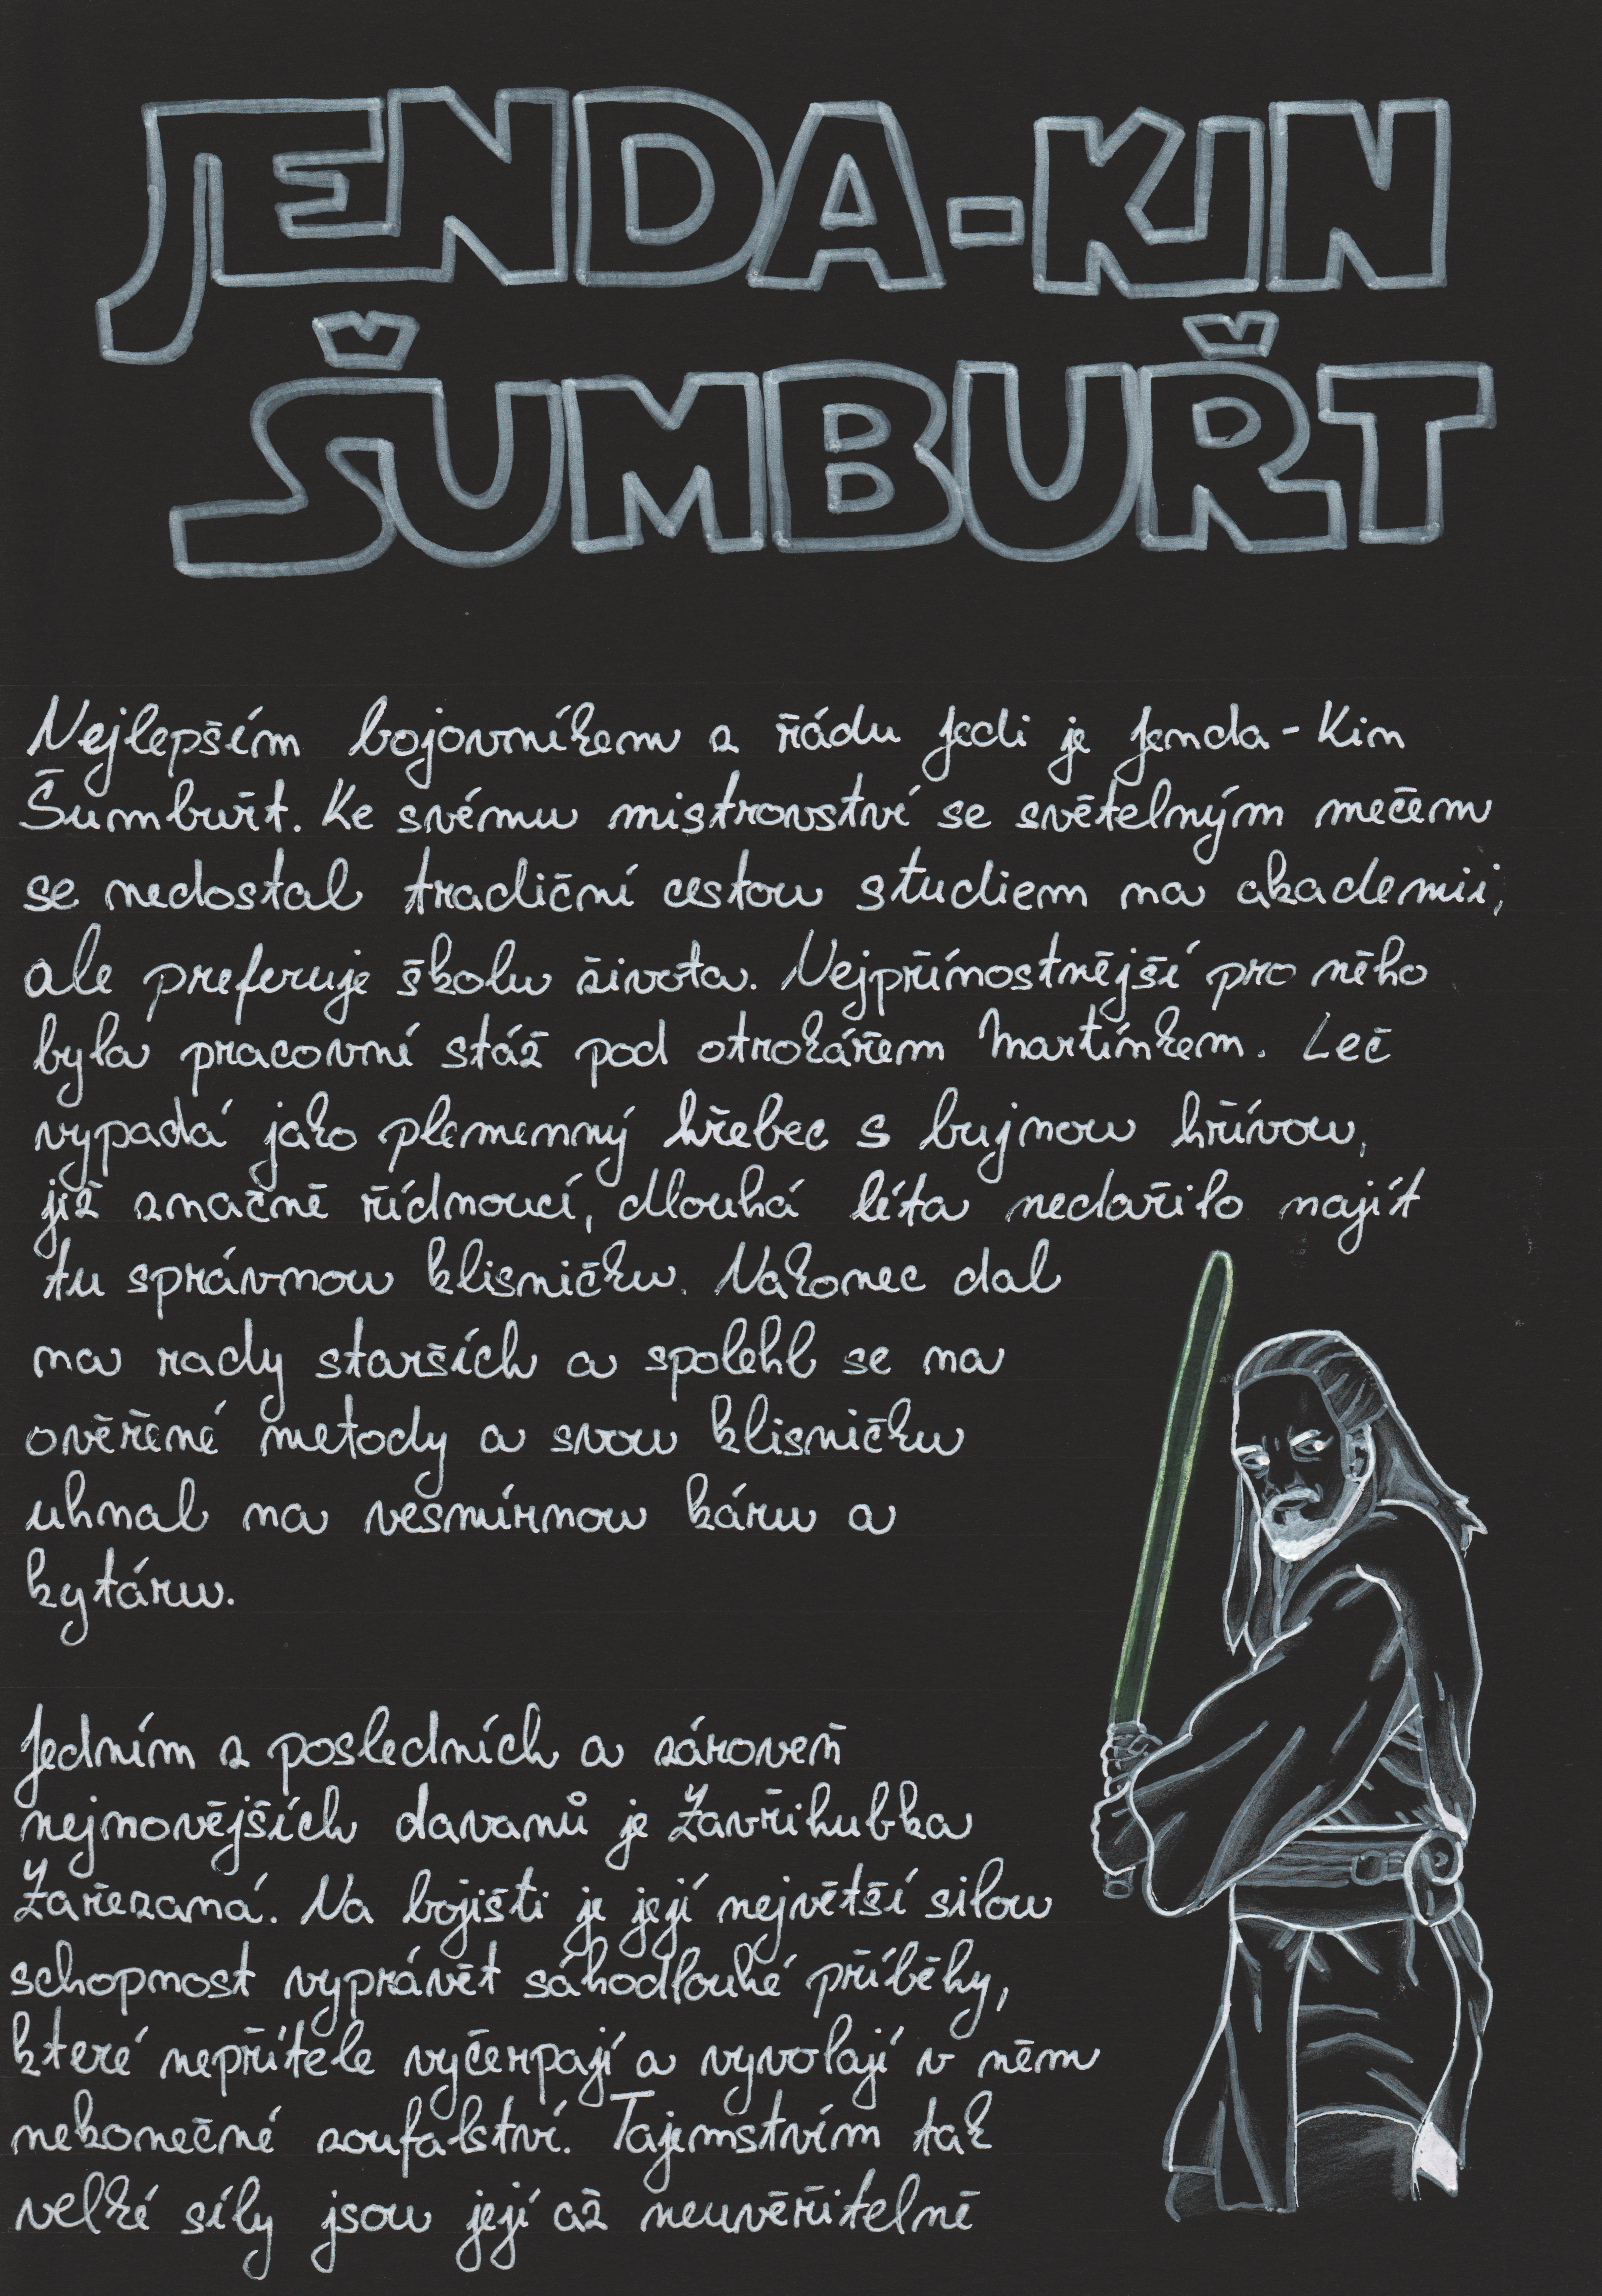 JENDA-KIN
ŠUMBUŘT
Nejlepším bojovníkem z řádu Jedi je Jenda-Kin
Šumbuřt. Ke svému mistrovství se světelným mečem
se nedostal tradiční cestou studiem na akademii,
ale preferuje školu života. Nejpřínostnější pro něho
byla pracovní stáž pod otrokářem Martínkem. Leč
vypadá jako plemenný hřebec s bujnou hřívou,
již značně řídnoucí, dlouhá léta nedařilo najít
tu správnou klisničku. Nakonec dal
na rady starších a spolehl se na
ověřené metody a svou klisničku
uhnal na vesmírnou káru a
kytáru.
Jedním z posledních a zároveň
nejnovějších davanů je Zavřihubka
Zařezaná. Na bojišti je její největší silou
schopnost vyprávět sáhodlouhé příběhy,
které nepřítele vyčerpají a vyvolají v něm
nekonečné zoufalství. Tajemstvím tak
velké síly jsou její až neuvěřitelně